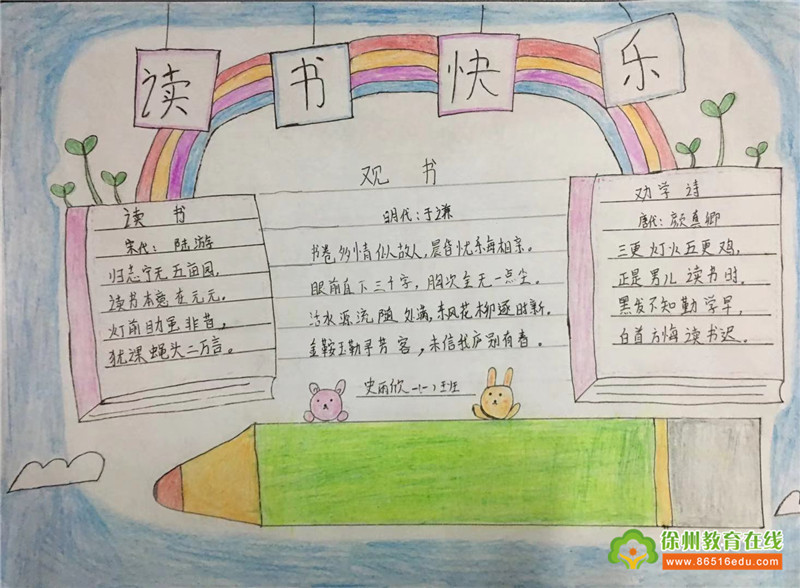 读书快乐
读 书
宋代：陆游
归志宁无五亩园，
读书本意在元元。
灯前目力虽非昔，
犹课蝇头二万言。
观 书
明代：于谦
书卷多情似故人，晨昏忧乐每相亲。
眼前直下三千字，胸次全无一点尘。
活水源流随处满，东风花柳逐时新。
金鞍玉勒寻芳客，未信我庐别有春。
史雨欣 一(一)班
劝 学 诗
唐代：颜真卿
三更灯火五更鸡，
正是男儿读书时。
黑发不知勤学早，
白首方悔读书迟。
徐州教育在线
www.86516edu.com